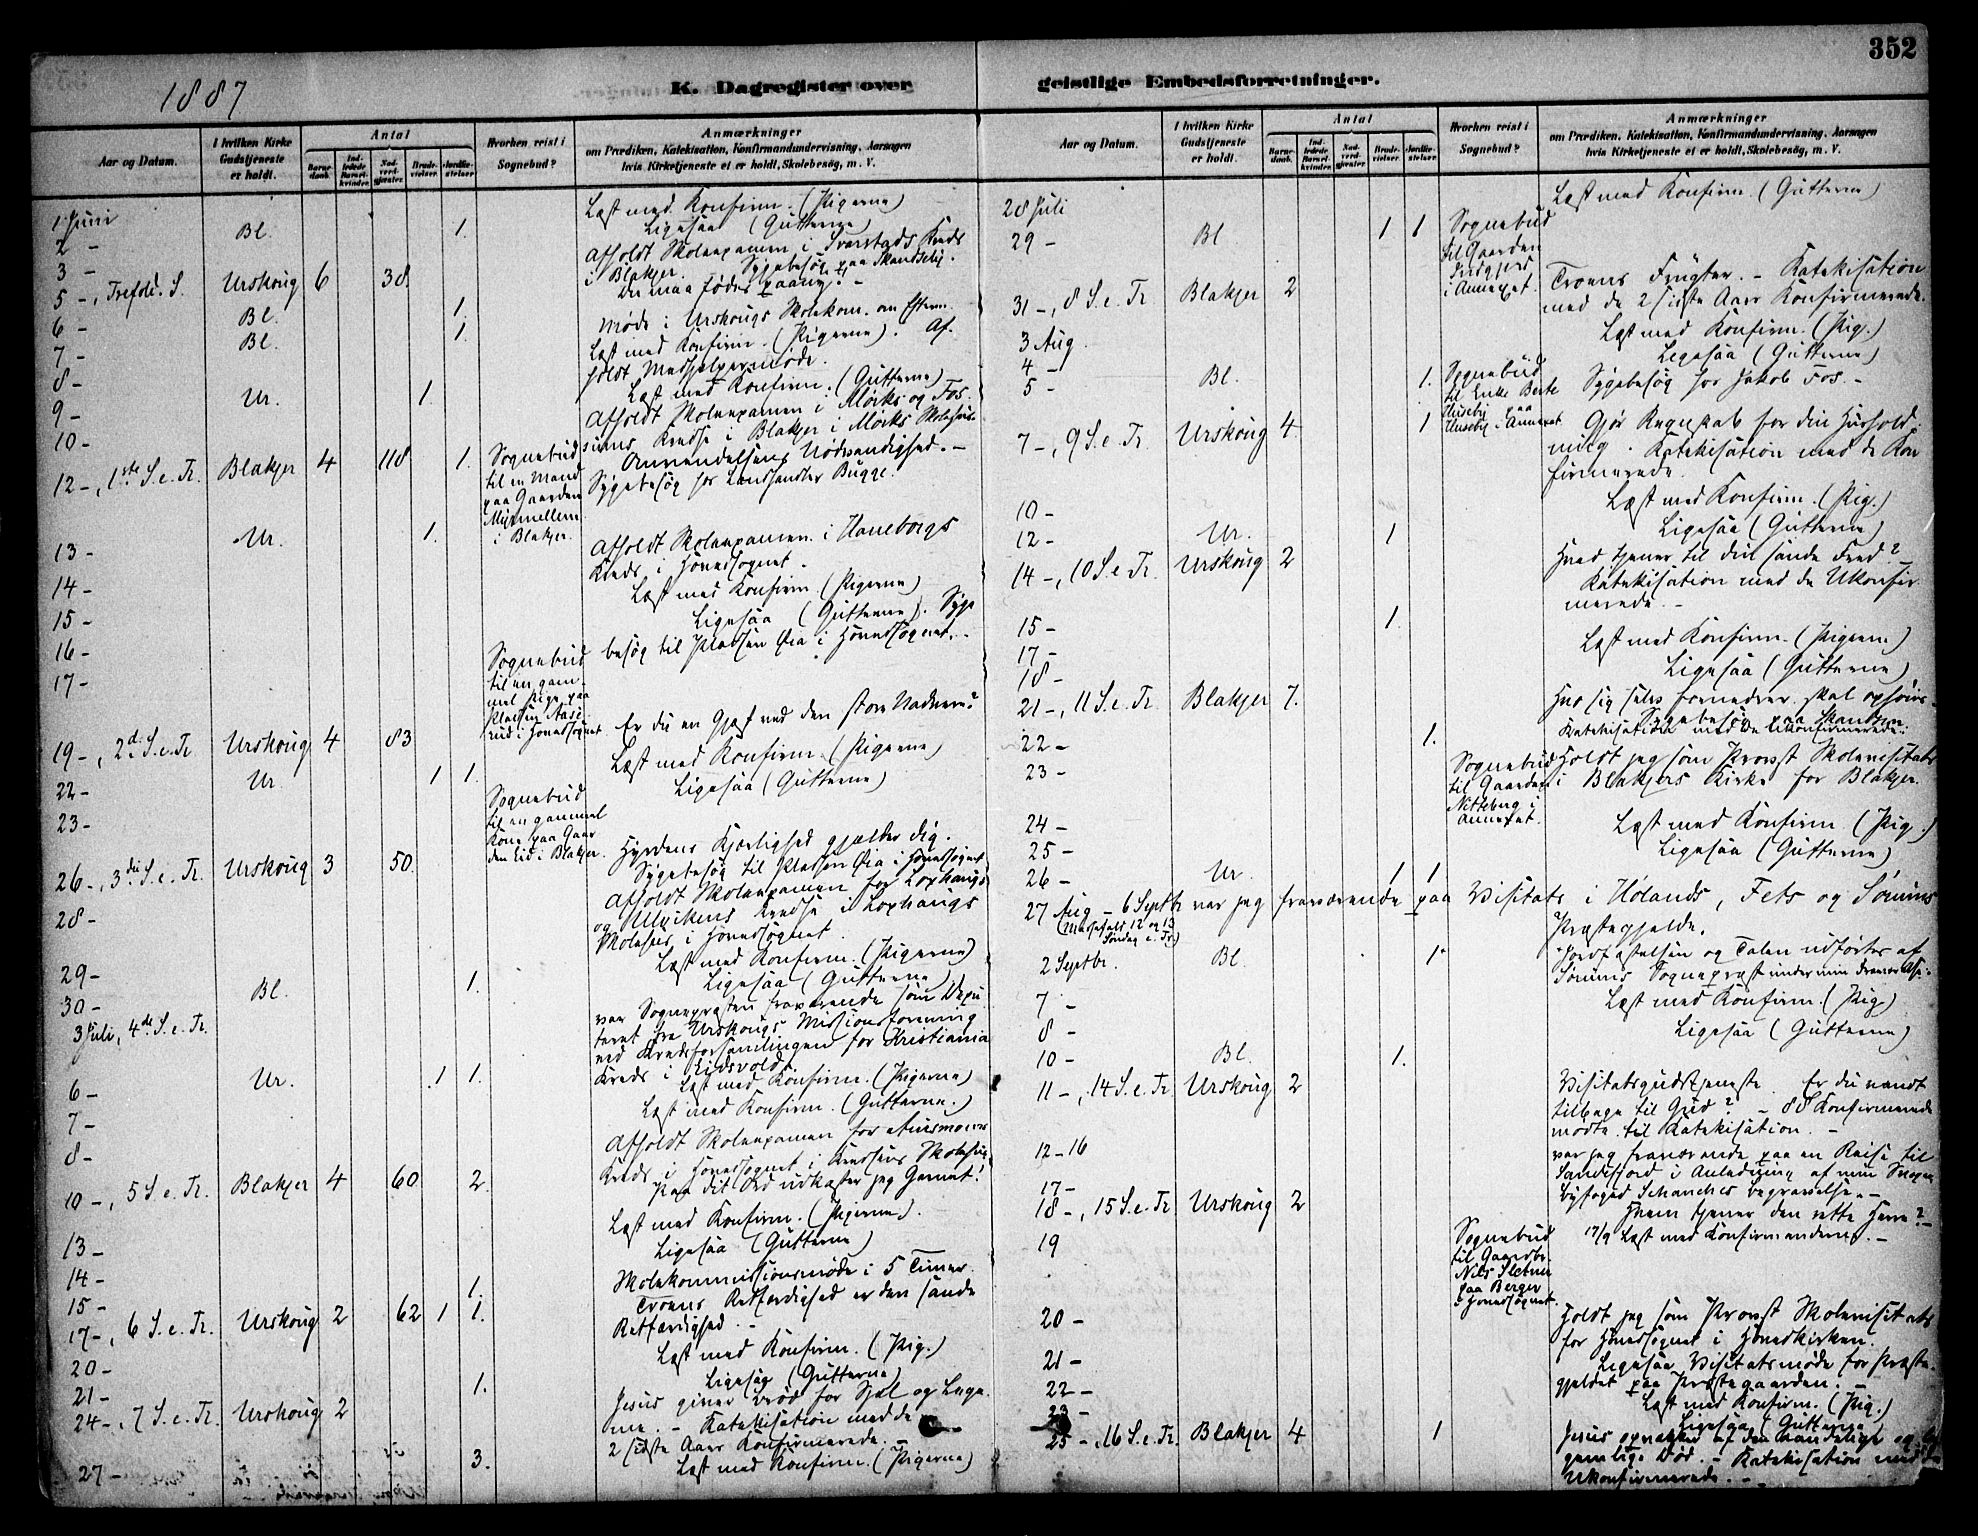 352
1887
K. Dagregister over geistlige Embedsforretninger.
Aar og Datum.
I hvilken Kirke Gudstjeneste er holdt.
Antal
Barnedaab.
Indledede Barselkvinder.
Nadverdgjester.
Brudevielser.
Jordfæstelser.
Hvorhen reist i Sognebud?
Anmærkninger
om Prædiken, Katekisation, Konfirmandundervisning, Aarsagen
hvis Kirketjeneste ei er holdt, Skolebesög, m. V.
1 Juni Læst med Konfirm. (Pigerne)
2 - Bl. 1. Ligesaa (Gutterne)
3 - Afholdt Skoleexamen i Kreds
i Blakjer. Sygebesøg paa
5 -, Trefold. S. Urskoug 6 38. Du maa fødes paany! -
6 - Bl. 1. Møde i Urskougs Skolekom. om Efterm.
7 - Bl. 1. Læst med Konfirm. (Pigerne). Af-
holdt Medhjelpermøde.
8 - Læst med Konfirm. (Gutterne)
9 - Ur. 1. Afholdt Skoleexamen i Mørks og Fos-
10 - Kredse i Blakjer i Mørks Skolehus.
12 -, 1ste S. e. Tr. Blakjer 4 118 1. Sognebud til en Mand paa Gaarden i Blakjer. Anvendelsens Nødvendighed. -
Sygebesøg hos Landhandler Bugge.
13 - Ur. 1. Afholdt Skoleexamen i Haneborgs
Kreds i Hovedsognet.
14 -
15 - Læst med Konfirm. (Pigerne)
16 - Ligesaa (Gutterne). Syge-
besøg til Pladsen i Hovedsognet. -
17 - Sognebud til en gammel Pige paa Pladsen i Hovedsognet
19 -, 2d. S. e. Tr. Urskoug 4 83 Er du en Gjest ved den store Nadvere?
22 - Ur. 1 1. Læst med Konfirm. (Pigerne)
23 - Ligesaa (Gutterne)
Sognebud til en gammel Kone paa Gaarden Eid i Blakjer.
26 -, 3die S. e. Tr. Urskoug 3 50. Hyrdens Kjærlighed gjælder dig.
Sygebesøg til Pladsen i Hovedsognet
28 - Afholdt Skoleexamen for
og Ulvikens Kredse i
Skolehus i Hovedsognet.
29 - Læst med Konfirm. (Pigerne)
30 - Bl. 1. Ligesaa (Gutterne)
3 Juli, 4de S. e. Tr. var Sognepræsten fraværende som Depu-
teret fra Urskougs Missionsforening
ved Kredsforsamlingen for Kristiania
Kreds i Eidsvold.
6 - Ur. 1 1. Læst med Konfirm. (Pigerne)
7 - Læst med Konfirm. (Gutterne.)
8 - Afholdt Skoleexamen for
Kreds i Hovedsognet i Kredsens Skolehus.
10 -, 5 S. e. Tr. Blakjer 4 60 2. Paa dit Ord udkaster jeg Garnet!
13 - Læst med Konfirm. (Pigerne).
14 - Ligesaa (Gutterne)
15 - 1. Skolekommissionsmøde i 5 Timer.
17 -, 6 S. e. Tr. Urskoug 2 62 1 1. Troens Retfærdighed er den sande
Retfærdighed. -
20 - Læst med Konfirm. (Pig.)
21 - 1. Ligesaa (Gutterne)
24 -, 7 S. e. Tr. Urskoug 2 Jesus giver Brød for Sjæl og Lege-
me. - Katekisation med de
2 sidste Aars Konfirmerede. -
27 - 3. Læst med Konfirm. (Pigerne)
Aar og Datum.
I hvilken Kirke Gudstjeneste er holdt.
Antal
Barnedaab.
Indledede Barselkvinder.
Nadverdgjester.
Brudevielser.
Jordfæstelser.
Hvorhen reist i Sognebud?
Anmærkninger
om Prædiken, Katekisation, Konfirmandundervisning, Aarsagen
hvis Kirketjeneste ei er holdt, Skolebesög, m. V.
28 Juli Læst med Konfirm. (Gutterne)
29 - Bl. 1 1 Sognebud til Gaarden i Annexet.
31 -, 8 S. e. Tr. Blakjer 2 Troens Frugter. - Katekisation
med de 2 sidste Aars Konfirmerede.
3 Aug. Læst med Konfirm. (Pig.)
4 - Ligesaa (Gutterne)
5 - Bl. 1. Sognebud til Enke Berte Huseby paa Huseby i Annexet Sygebesøg hos Jakob Fos. -
7 -, 9 S. e. Tr. Urskoug 4. 1 Gjør Regnskab for din Hushold-
ning. Katekisation med de Kon-
firmerede.
10 - Læst med Konfirm. (Pig.)
12 - Ur. 1 Ligesaa (Gutterne)
14 -, 10 S. e. Tr. Urskoug 2 Hvad tjener til din sande Fred? -
Katekisation med de Ukonfir-
merede. -
15 - 1.
17 - Læst med Konfirm. (Pigerne)
18 - Ligesaa (Gutterne)
21 -, 11 S. e. Tr. Blakjer 7. Hvo sig selv fornedrer, skal ophøies -
Katekisation med de Ukonfirmerede.
22 - 1. Sygebesøg paa
23 - Sognebud til Gaarden Nitteberg i Annexet. Holdt jeg som Provst Skolevisitats
i Blakjers Kirke for Blakjer.
24 - Læst med Konfirm. (Pig.)
25 - Ligesaa (Gutterne)
26 - Ur. 1 1
27 Aug - 6 Septbr var jeg fraværende paa Visitats i Hølands, Fets og Sørums
(Messefald 12 og 13 Søndag e. Tr.) Præstegjelde.
2 Septbr. Bl. 1. Jordfæstelsen og Talen udførtes af
Sørums Sogneprest under min
7 - Læst med Konfirm. (Pig)
8 - Ligesaa (Gutterne)
10 - Bl. 1.
11 -, 14 S. e. Tr. Urskoug 2 Visitatsgudstjeneste. Er du vendt
tilbage til Gud? - 88 Konfirmerede
mødte til Katekisation. -
12 - 16 var jeg fraværende paa en Reise til
Sandefjord i Anledning af min
byfoged Schanches Begravelse. -
17 -
18 -, 15 S. e. Tr. Urskoug 2 Hvem tjener den rette Herre? -
19 Sognebud til Gaardbr. Nils Sletner paa Berger i Hovedsognet. 17/9 Læst med Konfirmanderne. -
20 - Holdt jeg som Provst Skolevisitats
for Hovedsognet i Hovedkirken.
21 - Ligesaa Visitatsmøde for Præste-
gjeldet paa Præstegaarden. -
22 - Læst med Konfirm. (Pig.)
23 - Ligesaa (Gutterne)
25 -, 16 S. e. Tr. Blakjer 4 1 Jesus opvækker af den aandelige og le-
gemlige Død. - Katekisation med de
Ukonfirmerede. -